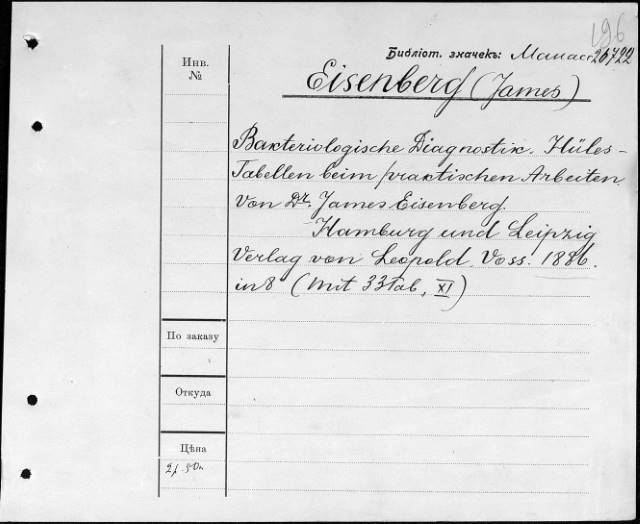 196
Библіот. значекъ: Манасс 26722
Инв.
№
Eisenberg (James)
Bakteriologische Diagnostik. Hülfs-
Tabellen beim praktischen Arbeiten
Von Dr. James Eisenberg.
Hamburg und Leipzig
Verlag von Leopold Voss. 1886.
in 8 (Mit 33 Tab, XI)
По заказу
Откуда
Цѣна
2р. 50к